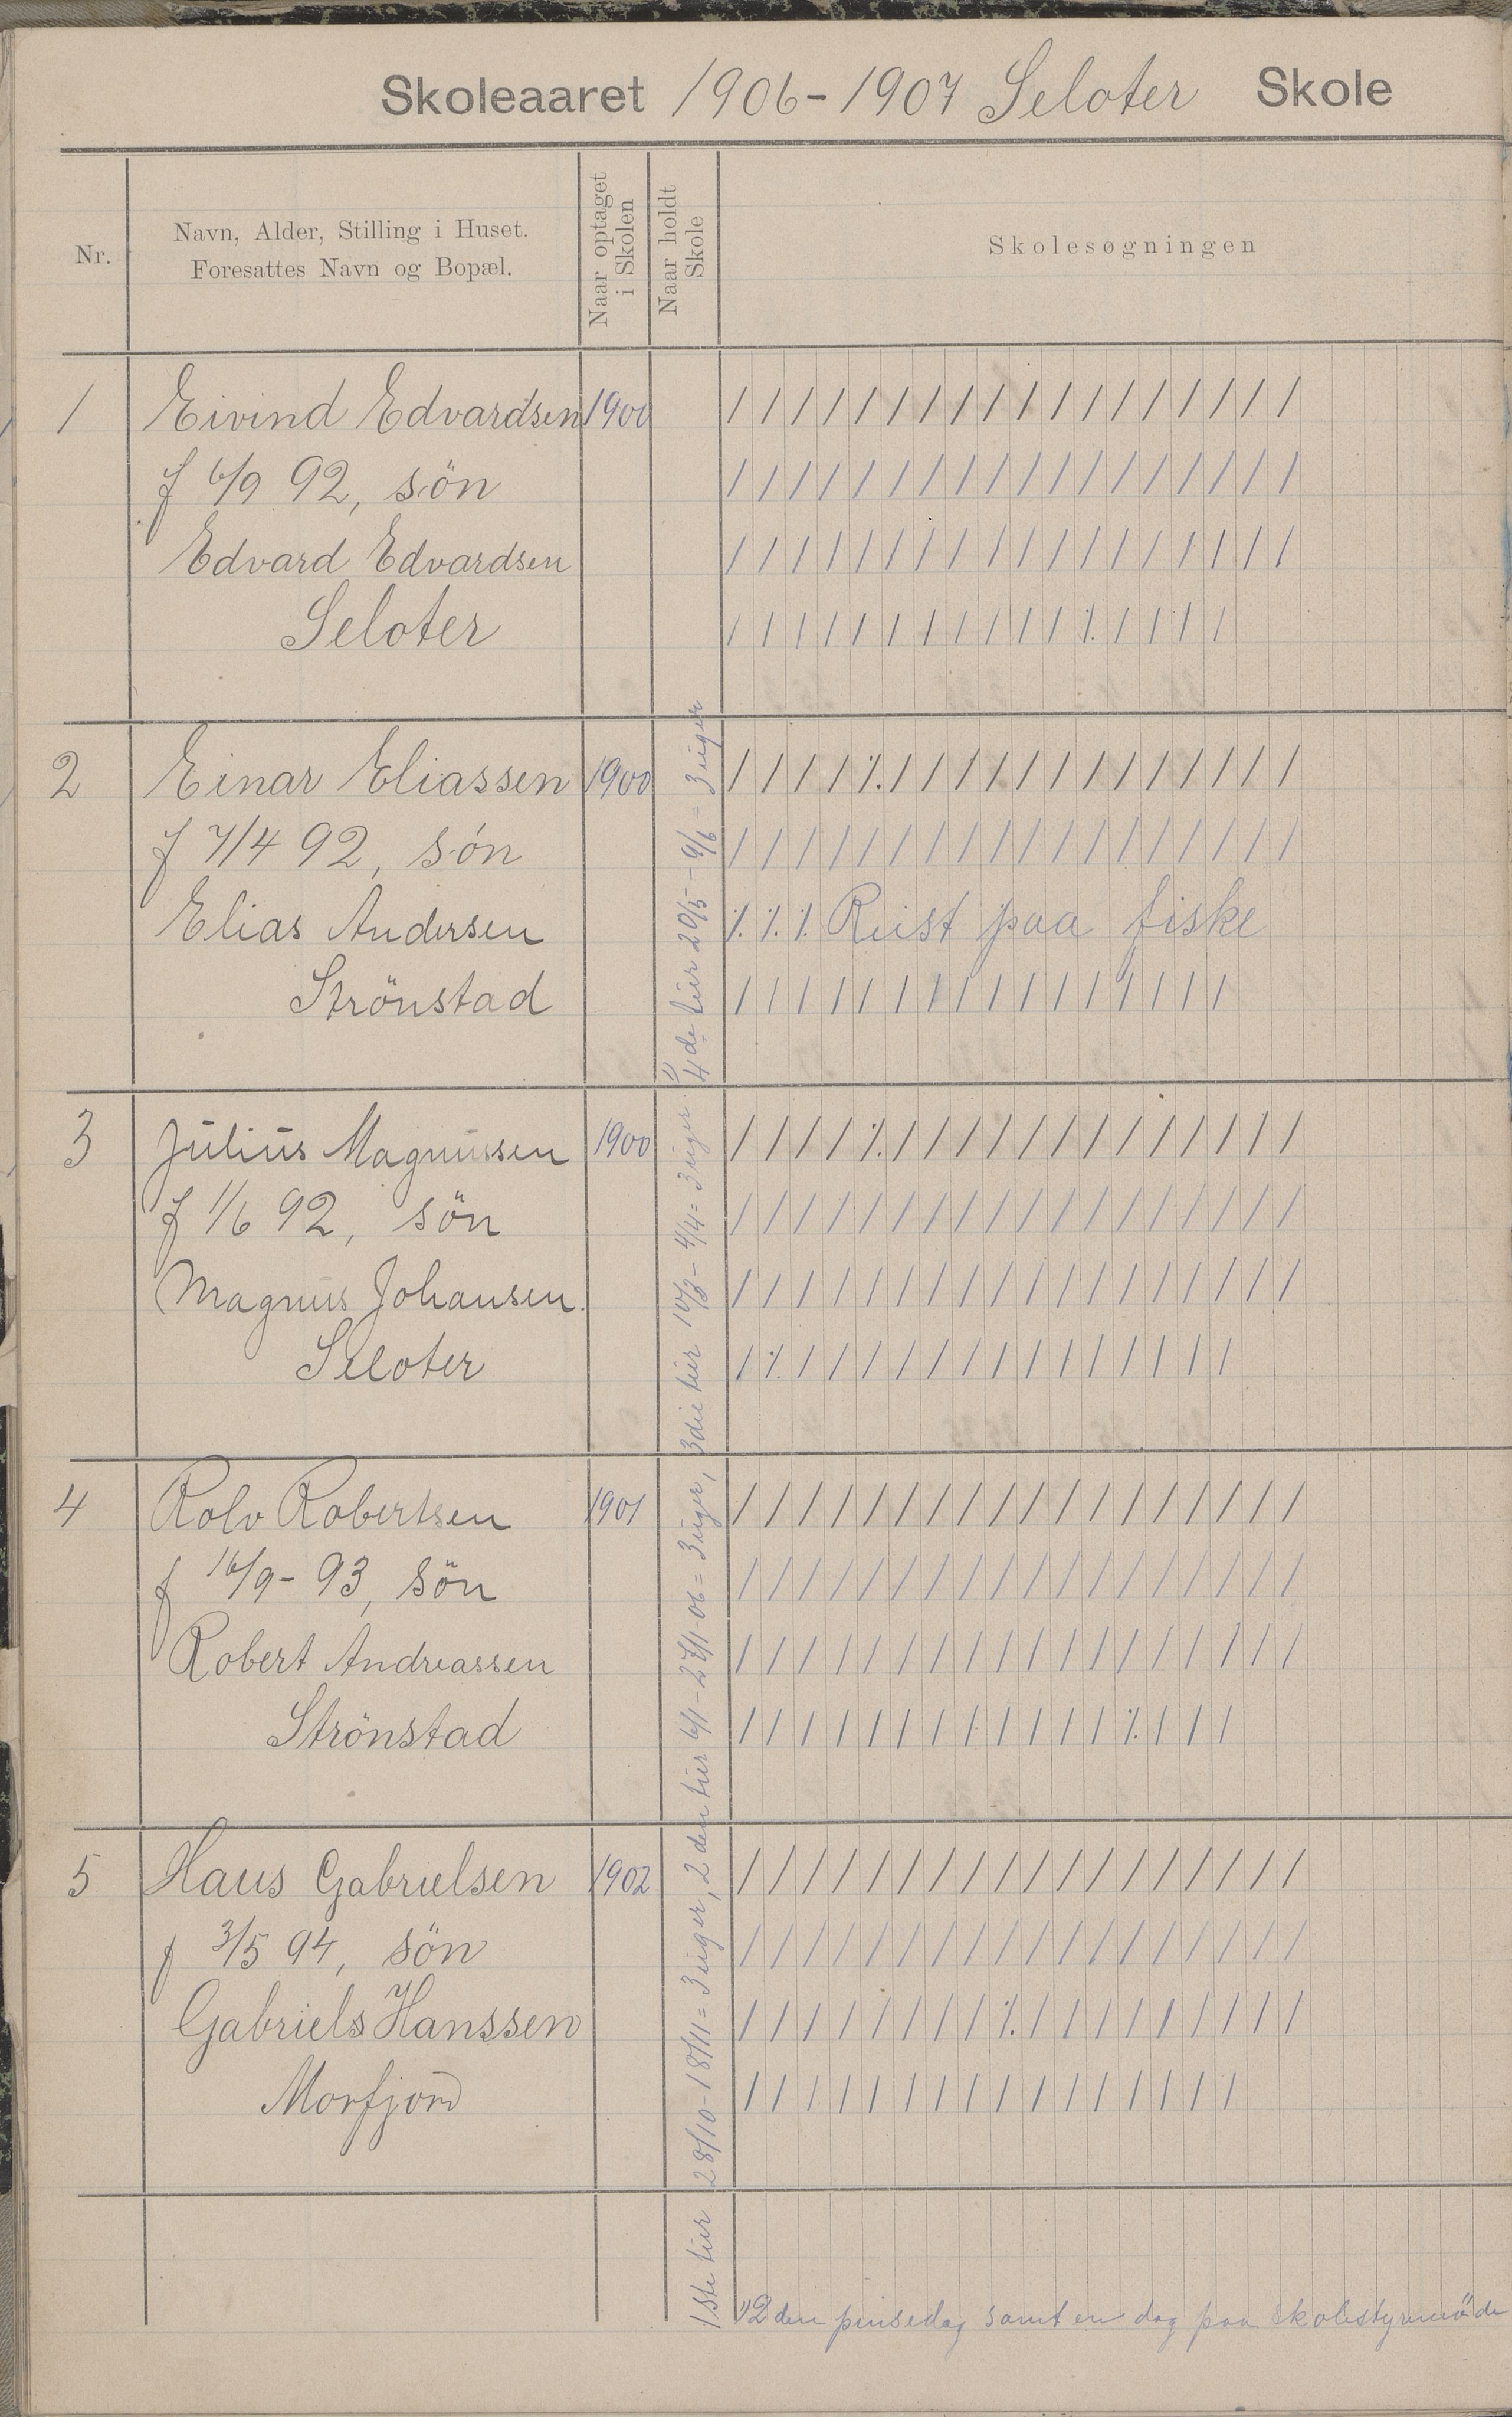 Skoleaaret 1906-1907 Seloter Skole
Nr.
Navn, Alder, Stilling i Huset.
Foresattes Navn og Bopæl.
Naar optaget
i Skolen
Naar holdt
Skole
Skolesøgningen
1 Eivind Edvardsen 1900 / / / / / / / / / / / / / / / / / /
f 6/9 92, sön / / / / / / / / / / / / / / / / / /
Edvard Edvardsen / / / / / / / / / / / / / / / / / /
Seloter / / / / / / / / / / / ⁒ / / / /
2 Einar Eliassen 1900 / / / / ⁒ / / / / / / / / / / / / /
f 7/4 92, sön / / / / / / / / / / / / / / / / / /
Elias Andersen ⁒ ⁒ ⁒ Reist paa fiske
Strönstad / / / / / / / / / / / / / / / /
3 Julius Magnussen 1900 / / / / ⁒ / / / / / / / / / / / / /
f 1/6 92, sön / / / / / / / / / / / / / / / / / /
Magnus Johansen. / / / / / / / / / / / / / / / / / /
Seloter / ⁒ / / / / / / / / / / / / / /
4 Rolv Robertsen 1901 / / / / / / / / / / / / / / / / / /
f 16/9-93, sön / / / / / / / / / / / / / / / / / /
Robert Andreassen / / / / / / / / / / / / / / / / / /
Strönstad / / / / / / / / / / / / ⁒ / / /
5 Hans Gabrielsen 1902 / / / / / / / / / / / / / / / / / /
f 3/5 94, sön / / / / / / / / / / / / / / / / / /
Gabriels Hanssen / / / / / / / / ⁒ / / / / / / / / /
Morfjord / / / / / / / / / / / / / / / /
1ste tur 28/10-18/11 = 3 uger, 2den tur 6/1-27/1-06 = 3 uger, 3die tur 10/3-4/4 = 3 uger. 1) 4de tur 20/5-9/6 = 3 uger
1) 2den pinsedag samt en dag paa skolestyremöde